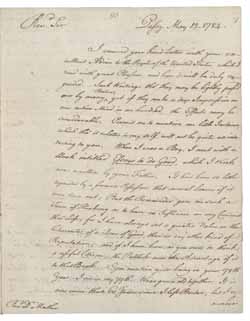 Revd Sir,
Passy, May 12. 1784.
I received your kind Letter with your ex-
cellent Advice to the People of the United States, which I
read with great Pleasure, and hope it will be duly re-
garded. Such Writings tho' they may be lightly passed
over by many Readers, yet if they make a deep Impression on
one active Mind in an hundred, the Effects may be
considerable. Permit me to mention one little Instance
which tho' it relates to myself, will not be quite uninte-
resting to you. When I was a Boy, I met with a
Book intitled Essays to do Good, which I think
was written by your Father. It had been so little
regarded by a former Possessor, that several Leaves of it
were torn out: But the Remainder gave me such a
Turn of Thinking as to have an Influence on my Conduct
thro' Life; for I have always set a greater Value on the
Character of a Doer of Good, than on any other kind of
Reputation; and if I have been, as you seem to think,
a useful Citizen, the Publick owes the Advantage of it
to that Book. You mention your being in your 78th
Year: I am in my 79th; we are grown old together. It is
now more than 60 Years since I left Boston, but I
Revd Dr Mather